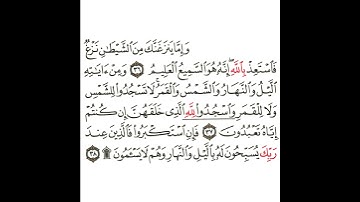 وَإِمَّا يَنزَغَنَّكَ مِنَ ٱلشَّيْطَٰنِ نَزْغٌ
فَٱسْتَعِذْ بِٱللَّهِ إِنَّهُۥ هُوَ ٱلسَّمِيعُ ٱلْعَلِيمُ ٣٦ وَمِنْ ءَايَٰتِهِ
ٱلَّيْلُ وَٱلنَّهَارُ وَٱلشَّمْسُ وَٱلْقَمَرُ لَا تَسْجُدُوا۟ لِلشَّمْسِ
وَلَا لِلْقَمَرِ وَٱسْجُدُوا۟ لِلَّهِ ٱلَّذِى خَلَقَهُنَّ إِن كُنتُمْ
إِيَّاهُ تَعْبُدُونَ ٣٧ فَإِنِ ٱسْتَكْبَرُوا۟ فَٱلَّذِينَ عِندَ
رَبِّكَ يُسَبِّحُونَ لَهُۥ بِٱلَّيْلِ وَٱلنَّهَارِ وَهُمْ لَا يَسْـَٔمُونَ ۩ ٣٨